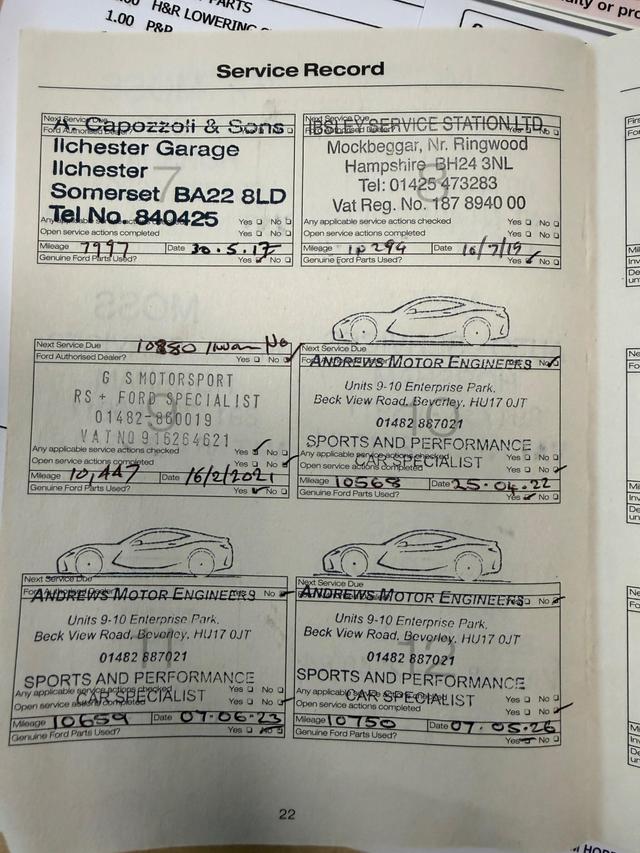 PARTS
H&R LOWERING
1.00 P&P
Service Record
Next Service Due
Ford Authorised Dealer?
A. Capozzoli & Sons
Ilchester Garage
Ilchester
Somerset BA22 8LD
Tel No. 840425
Any applicable service actions checked Yes No
Open service actions completed Yes No
Mileage 7997 Date 30.5.17
Genuine Ford Parts Used? Yes No
Next Service Due
Ford Authorised Dealer? Yes No
IBSLEY SERVICE STATION LTD
Mockbeggar, Nr. Ringwood
Hampshire BH24 3NL
Tel: 01425 473283
Vat Reg. No. 187 8940 00
Any applicable service actions checked Yes No
Open service actions completed Yes No
Mileage Date
Genuine Ford Parts Used? Yes No
Next Service Due 10880
Ford Authorised Dealer? Yes No
G S MOTORSPORT
RS + FORD SPECIALIST
01482-860019
VAT NO 916264621
Any applicable service actions checked Yes No
Open service actions completed Yes No
Mileage 10,447 Date 16/2/2021
Genuine Ford Parts Used? Yes No
Next Service Due
ANDREWS MOTOR ENGINEERS
Units 9-10 Enterprise Park,
Beck View Road, Beverley, HU17 0JT
01482 887021
SPORTS AND PERFORMANCE
CAR SPECIALIST
Any applicable service actions checked Yes No
Open service actions completed Yes No
Mileage 10568 Date 25.04.22
Genuine Ford Parts Used? Yes No
Next Service Due
ANDREWS MOTOR ENGINEERS
Units 9-10 Enterprise Park,
Beck View Road, Beverley, HU17 0JT
01482 887021
SPORTS AND PERFORMANCE
CAR SPECIALIST
Any applicable service actions checked Yes No
Open service actions completed Yes No
Mileage 10659 Date 07.06.23
Genuine Ford Parts Used? Yes No
Next Service Due
ANDREWS MOTOR ENGINEERS
Units 9-10 Enterprise Park,
Beck View Road, Beverley, HU17 0JT
01482 887021
SPORTS AND PERFORMANCE
CAR SPECIALIST
Any applicable service actions checked Yes No
Open service actions completed Yes No
Mileage 10750 Date 07.05.26
Genuine Ford Parts Used? Yes No
22